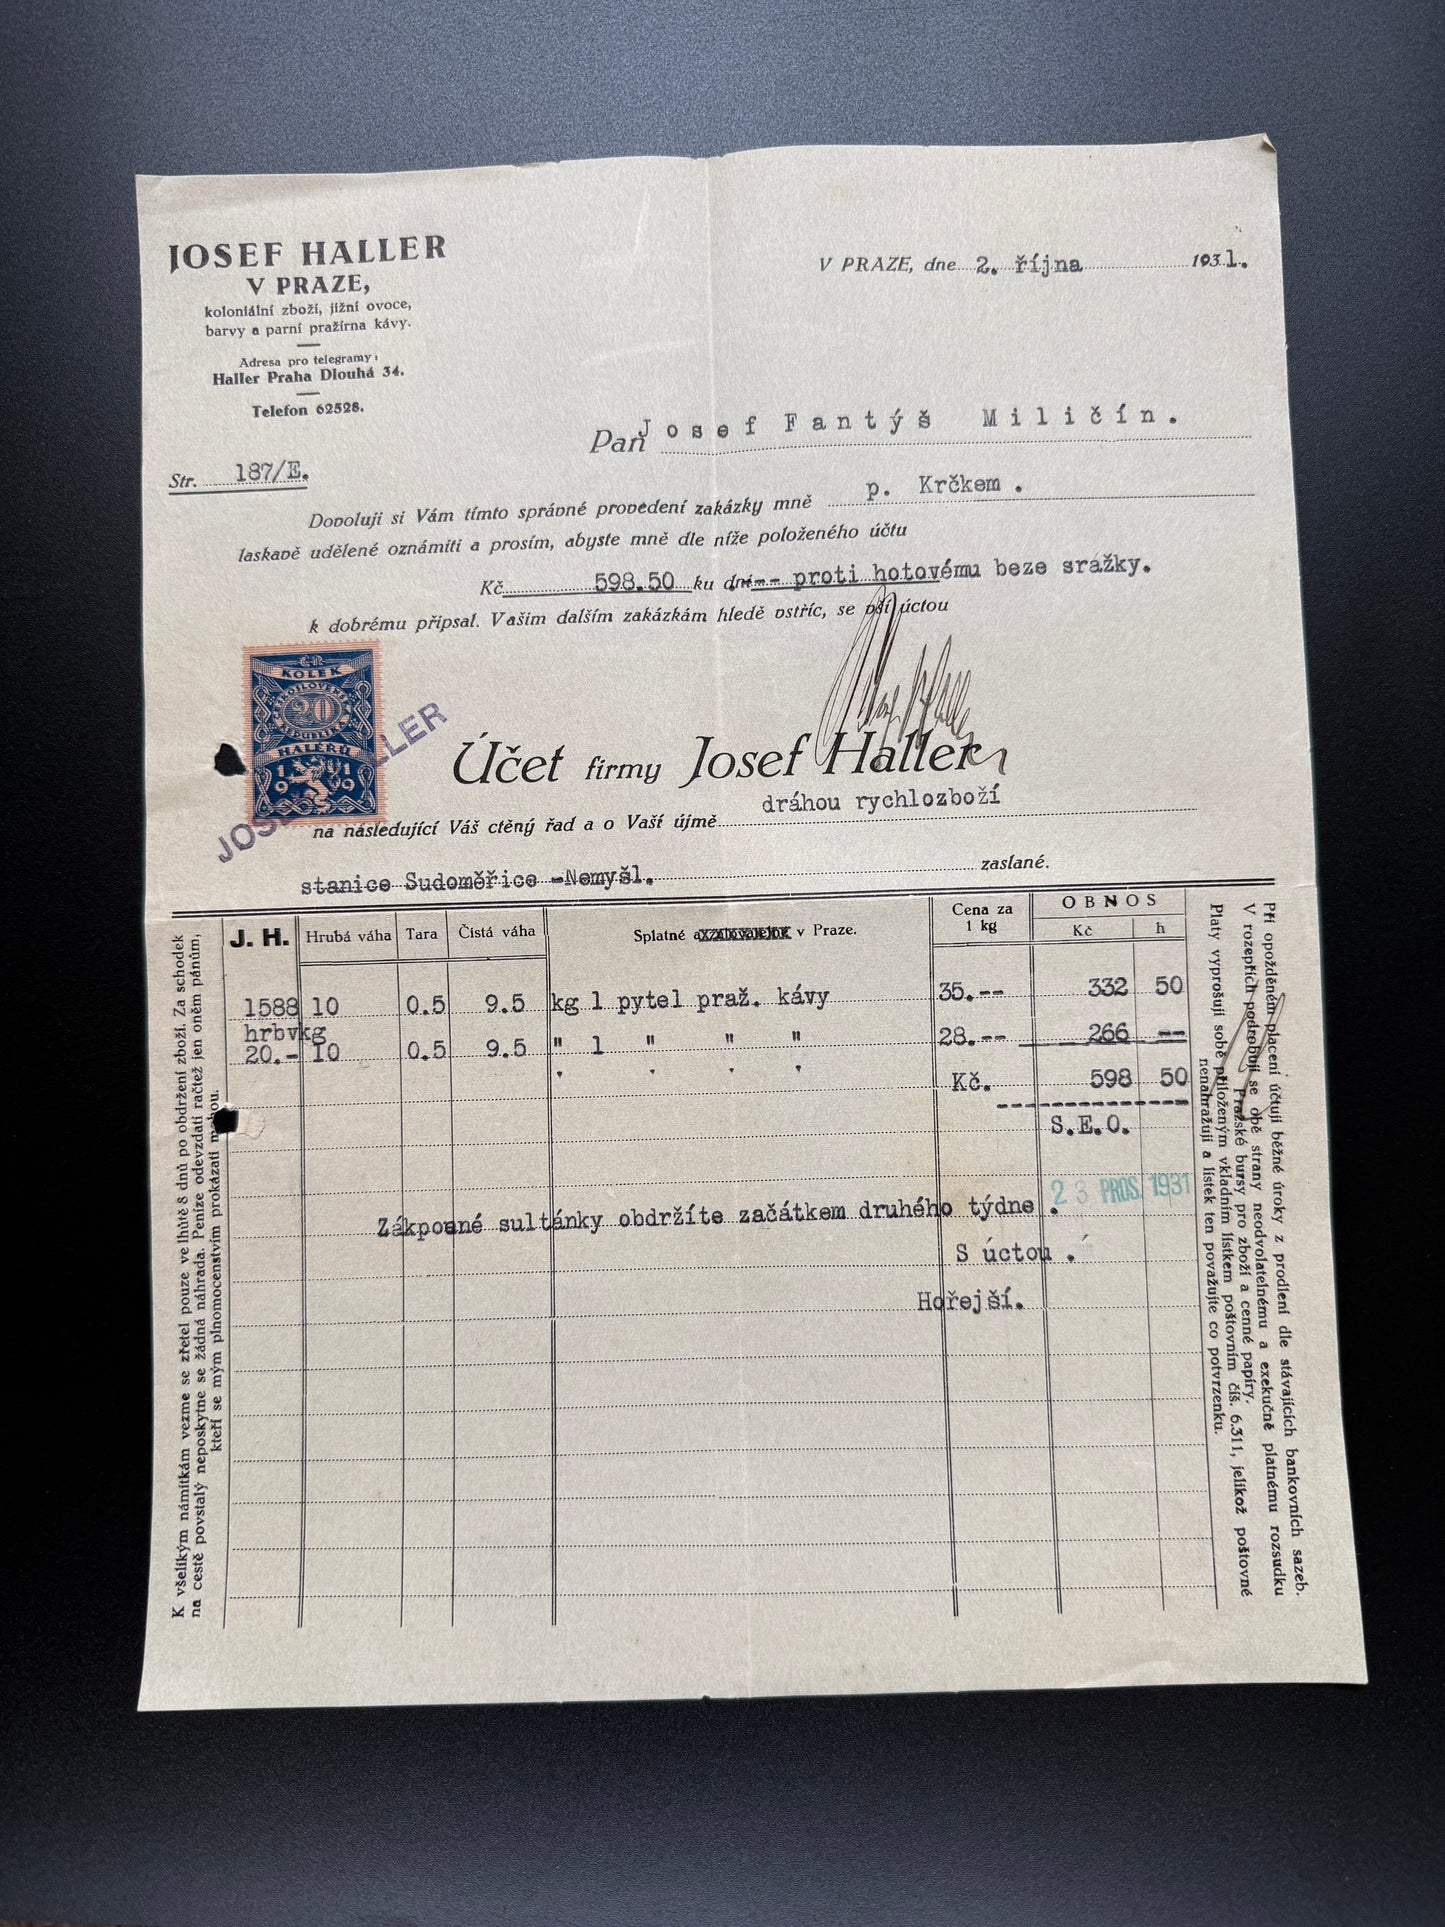 JOSEF HALLER
V PRAZE,
koloniální zboží, jižní ovoce,
barvy a parní pražírna kávy.
Adresa pro telegramy:
Haller Praha Dlouhá 34.
Telefon 62528.
V PRAZE, dne 2. října 1931.
Pan Josef Fantýš Miličín.
Str. 187/E.
Dovoluji si Vám tímto správné provedení zakázky mně p. Krčkem .
laskavě udělené oznámiti a prosím, abyste mně dle níže položeného účtu
Kč 598.50 ku dni --- proti hotovému beze srážky.
k dobrému připsal. Vašim dalším zakázkám hledě vstříc, se vší úctou
ČR
KOLEK
ČESKOSLOVENSKÁ
20
REPUBLIKA
HALÉŘŮ
1919
JOSEF HALLER
Účet firmy Josef Haller
na následující Váš ctěný řad a o Vaší újmě dráhou rychlozboží
stanice Sudoměřice -Nemyšl. zaslané.
J. H. Hrubá váha Tara Čistá váha Splatné a v Praze. Cena za 1 kg OBNOS Kč h
1588 10 0.5 9.5 kg 1 pytel praž. kávy 35.-- 332 50
hrbvkg
20.- 10 0.5 9.5 " 1 " " " 28.-- 266 --
Kč. 598 50
S.E.O.
23 PROS. 1931
Zákpoené sultánky obdržíte začátkem druhého týdne .
S úctou .
Hořejší.
K všelikým námitkám vezme se zřetel pouze ve lhůtě 8 dnů po obdržení zboží. Za schodek
na cestě povstalý neposkytne se žádná náhrada. Peníze odevzdati račtež jen oněm pánům,
kteří se mým plnomocenstvím prokázati mohou.
Při opožděném placení účtuji běžné úroky z prodlení dle stávajících bankovních sazeb.
V rozepřích podrobují se obě strany neodvolatelnému a exekučně platnému rozsudku
Pražské bursy pro zboží a cenné papíry.
Platy vyprošuji sobě přiloženým vkladním lístkem poštovním čís. 6.311, jelikož poštovné
nenahražuji a lístek ten považujte co potvrzenku.